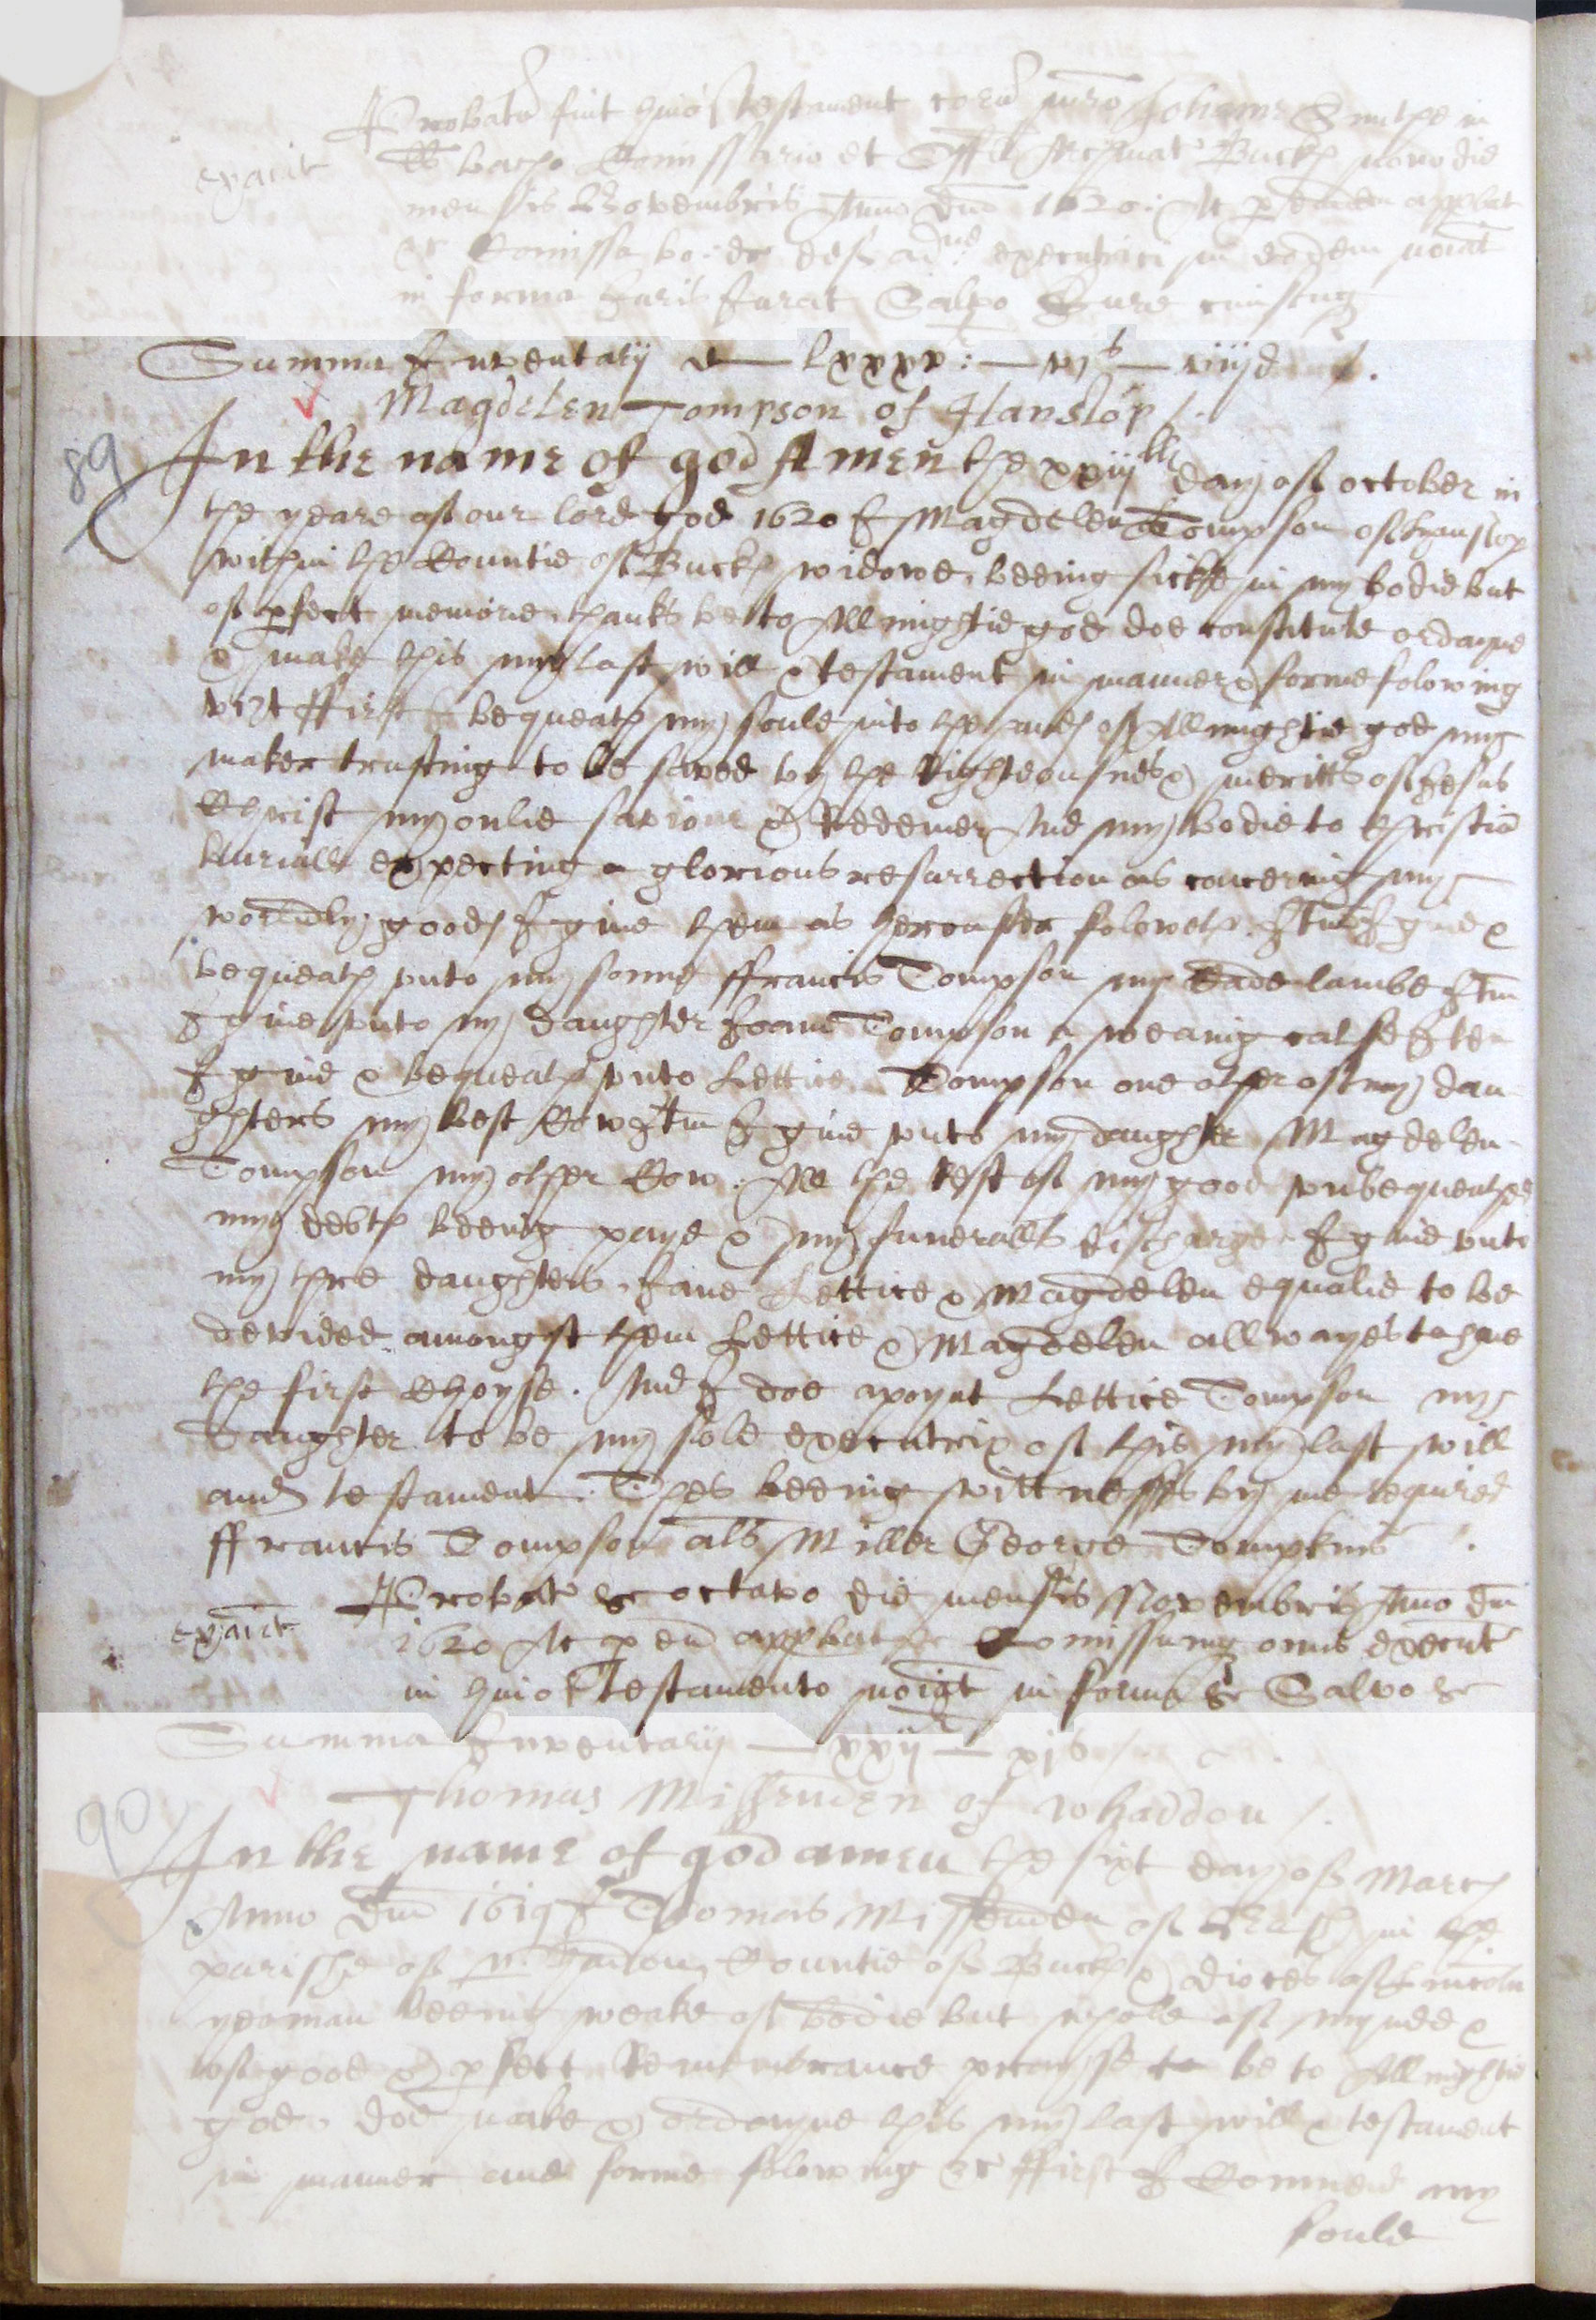 Probatu fuit huiōi testament coru mro Johanne Smithe in
exaīit
ll bacho Comissario et Offli Archinat Buck nono die
mensis Novembris Anno Dni 1620: Ac p eundem approbat
&c Comissa executrici in eodem noīat
in forma Juris Jurat Salvo Jure cuiuscuq
Summa Inventarij lxxxx: vjs viijd
Magdelen Tompson of Hanslop
89
In the name of god Amen the xxiijth day of october in
the yeare of our lord god 1620 I Magdelen Tompson of hanslop
within the Countie of Buck widowe, beeing sicke in my bodie but
of pfect memorie, thanks be to Allmightie god doe constitute ordayne
& make this my last will & testament in manner & forme folowing
vizt ffirst I bequeath my soule into the hands of Allmightie god my
maker trusting to be saved by the Righteousnes & meritts of Jesus
Christ my onlie saviour & Redemer And my bodie to Christia
buriall expecting a glorious resurrection as concering my
worldly goods I give them as hereafter foloweth. Itm I give &
bequeath unto my sonne ffrancis Tompson my Cade lambe Itm
I give unto my daughter Joane Tompson a weaning calfe Item
I give & bequeath unto Lettice Tompson one other of my dau
ghters my best Cow Itm I give unto my daughter Magdelen
Tompson my other Cow. All the Rest of my good unbequeathed
my debts beeing payd & my funeralls discharge I give unto
my thre daughters, Jane Lettice & Magdelen equalie to be
devided amongst them Lettice & Magdelen allwayes to have
the first Choyse. And I doe apoynt Lettice Tompson my
Daughter to be my sole executrix of this my last will
and testament. Thes beeing wittnesses by me required
ffrancis Tompson als Miller George Tompkins
Probat &c octavo die mensis Novembris Anno dni
exaīit
1620 Ac p eu approbat &c Comissumq onus execut
in huiōi testamento noīat in forma &c Salvo &c
Summa Inventarij xxij xjs
Thomas Missenden of Whaddon
90
In the name of god amen the sixt day of March
Anno Dni 1619 I Thomas Missenden of in the
parishe of Whaddon, Countie of Buck & dioces of Lincoln
yeoman beeing weake of bodie but whole of mynde &
of good & pfect Remembrance prayse be to Allmightie
god, doe make & ordayne this my last will & testament
in manner and forme folowing &c ffirst I Commend my
soule